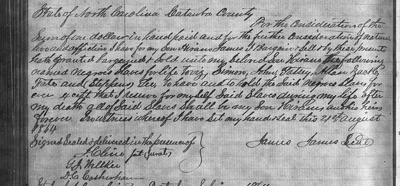 State of North Carolina Catawba County
For the Consideration of the
Sum of one dollar in hand paid and for the further Consideration of natural
love and affection I have for my Son Hiram James I Bargain & sell & by these presents
hath granted bargained & Sold unto my beloved Son Hiram the following
named Negroes Slaves for life Simon, John,
and Stephens, To have and to hold the Said Negroes Slaves for
ever except that I reserve for myself Said Slaves during my life & after
my death all of Said Slaves Shall be my Son Hirams and his heirs
forever In witness whereof I have Set my hand & seal this 21st August
1864
Signed Sealed & delivered in the presence of
James James Seal
J. Cline (Jurat)